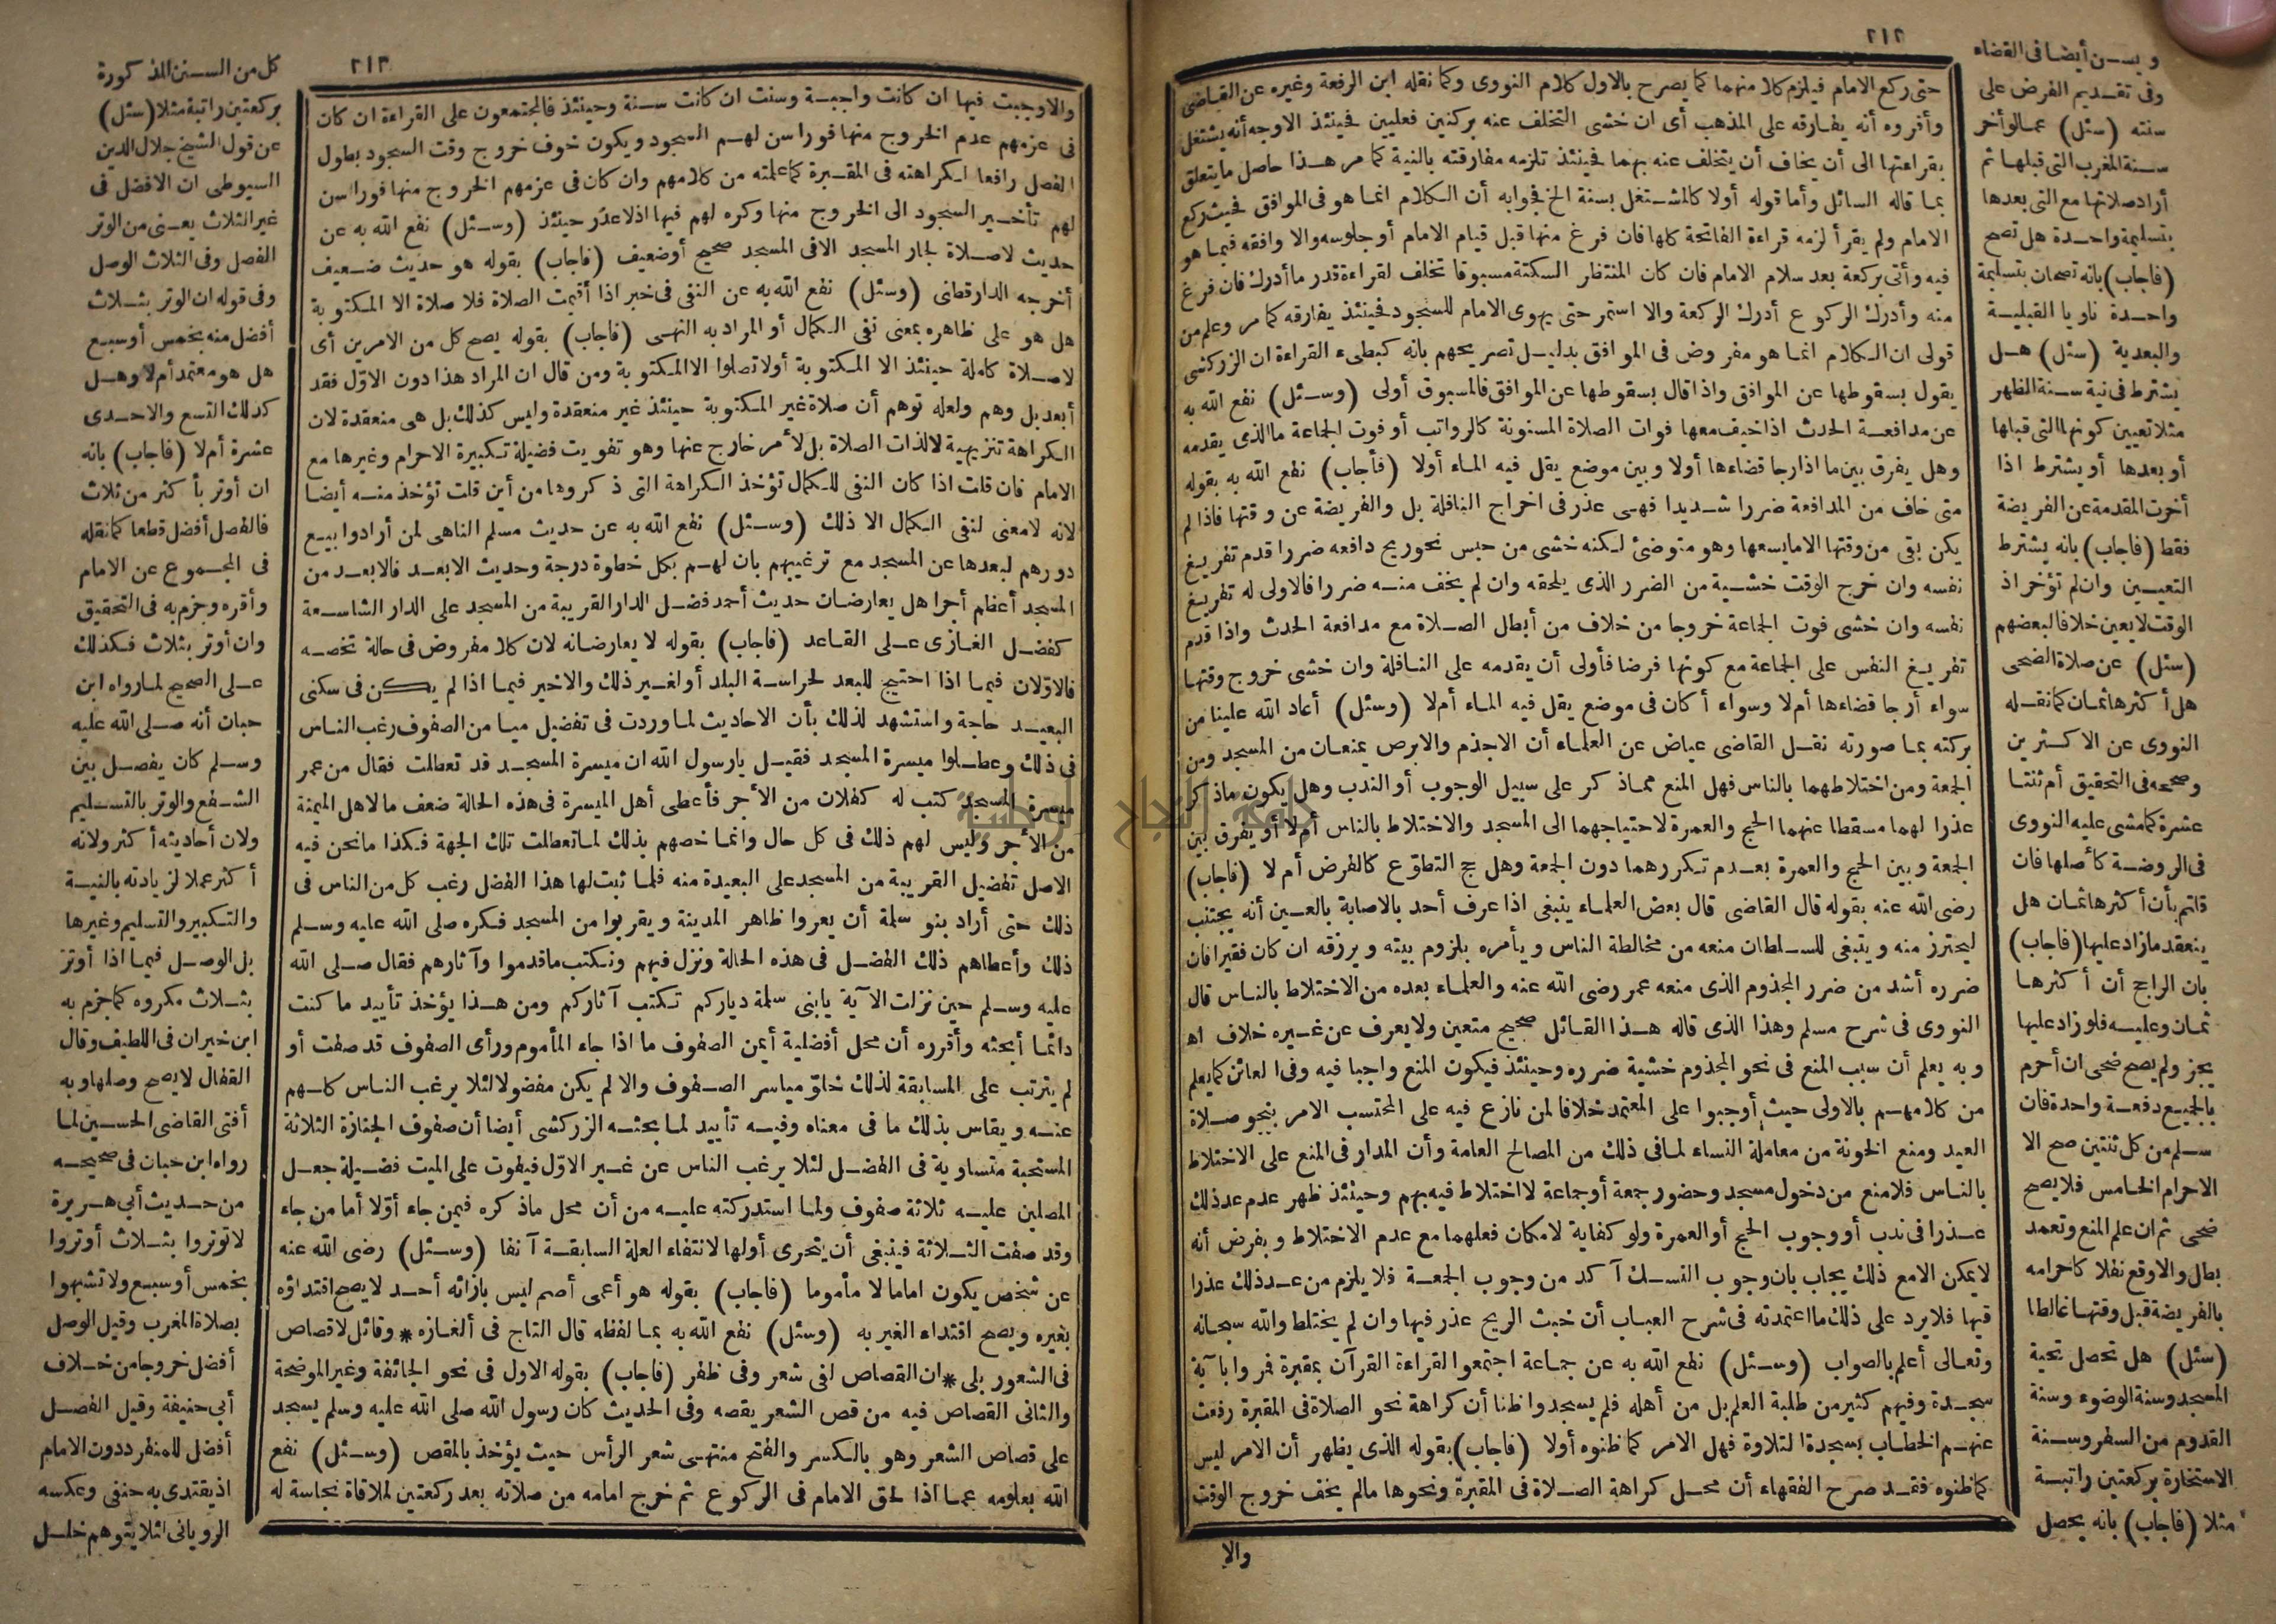 ٢١٢
حتى ركع الامام فيلزم كلا منهما كما يصرح بالاول كلام النووى وكما نقله ابن الرفعة وغيره عن القاضى
وأقروه أنه يفارقه على المذهب أى ان خشى التخلف عنه بركنين فعليين فحينئذ الاوجه أنه يشتغل
بقراءتها الى أن يخاف أن يتخلف عنه بهما فحينئذ تلزمه مفارقته بالنية كما مر هذا حاصل ما يتعلق
بما قاله السائل وأما قوله أولا كالمشتغل بسنة الخ فجوابه أن الكلام انما هو فى الموافق فحيث ركع
الامام ولم يقرأ لزمه قراءة الفاتحة كلها فان فرغ منها قبل قيام الامام أو جلوسه والا وافقه فيما هو
فيه وأتى بركعة بعد سلام الامام فان كان المنتظر السكتة مسبوقا تخلف لقراءة قدر ما أدرك فان فرغ
منه وأدرك الركوع أدرك الركعة والا استمر حتى يهوى الامام للسجود فحينئذ يفارقه كما مر وعلم من
قولى ان الكلام انما هو مفروض فى الموافق بدليل تصريحهم بانه كبطىء القراءة ان الزركشى
يقول بسقوطها عن الموافق واذا قال بسقوطها عن الموافق فالمسبوق أولى (وسئل) نفع الله به
عن مدافعة الحدث اذا خيف معها فوات الصلاة المسنونة كالرواتب أو فوت الجماعة ما الذى يقدمه
وهل يفرق بين ما اذا رجا قضاءها أولا وبين موضع يقل فيه الماء أولا (فأجاب) نفع الله به بقوله
متى خاف من المدافعة ضررا شديدا فهى عذر فى اخراج النافلة بل والفريضة عن وقتها فاذا لم
يكن بقى من وقتها الا ما يسعها وهو متوضئ لكنه خشى من حبس نحو ريح دافعه ضررا قدم تفريغ
نفسه وان خرج الوقت خشية من الضرر الذى يلحقه وان لم يخف منه ضررا فالاولى له تفريغ
نفسه وان خشى فوت الجماعة خروجا من خلاف من أبطل الصلاة مع مدافعة الحدث واذا قدم
تفريغ النفس على الجماعة مع كونها فرضا فأولى أن يقدمه على النافلة وان خشى خروج وقتها
سواء أرجا قضاءها أم لا وسواء أكان فى موضع يقل فيه الماء أم لا (وسئل) أعاد الله علينا من
بركته بما صورته نقل القاضى عياض عن العلماء أن الاجذم والابرص يمنعان من المسجد ومن
الجمعة ومن اختلاطهما بالناس فهل المنع مما ذكر على سبيل الوجوب أو الندب وهل يكون ما ذكر
عذرا لهما مسقطا عنهما الحج والعمرة لاحتياجهما الى المسجد والاختلاط بالناس أم لا أو يفرق بين
الجمعة وبين الحج والعمرة بعدم تكررهما دون الجمعة وهل حج التطوع كالفرض أم لا (فاجاب)
رضى الله عنه بقوله قال القاضى قال بعض العلماء ينبغى اذا عرف أحد بالاصابة بالعين أنه يجتنب
ليحترز منه وينبغى للسلطان منعه من مخالطة الناس ويأمره بلزوم بيته ويرزقه ان كان فقيرا فان
ضرره أشد من ضرر المجذوم الذى منعه عمر رضى الله عنه والعلماء بعده من الاختلاط بالناس قال
النووى فى شرح مسلم وهذا الذى قاله هذا القائل صحيح متعين ولا يعرف عن غيره خلاف اه
وبه يعلم أن سبب المنع فى نحو المجذوم خشية ضرره وحينئذ فيكون المنع واجبا فيه وفى العائن كما يعلم
من كلامهم بالاولى حيث أوجبوا على المعتمد خلافا لمن نازع فيه على المحتسب الامر بنحو صلاة
العيد ومنع الخونة من معاملة النساء لما فى ذلك من المصالح العامة وأن المدار فى المنع على الاختلاط
بالناس فلا منع من دخول مسجد وحضور جمعة أو جماعة لا اختلاط فيه بهم وحينئذ ظهر عدم عد ذلك
عذرا فى ندب أو وجوب الحج أو العمرة ولو كفاية لامكان فعلهما مع عدم الاختلاط وبفرض أنه
لا يمكن الا مع ذلك يجاب بان وجوب النسك آكد من وجوب الجمعة فلا يلزم من عد ذلك عذرا
فيها فلا يرد على ذلك ما اعتمدته فى شرح العباب أن خبث الريح عذر فيها وان لم يختلط والله سبحانه
وتعالى أعلم بالصواب (وسئل) نفع الله به عن جماعة اجتمعوا لقراءة القرآن بمقبرة فمروا بآية
سجدة وفيهم كثير من طلبة العلم بل من أهله فلم يسجدوا ظنا أن كراهة نحو الصلاة فى المقبرة رفعت
عنهم الخطاب بسجدة التلاوة فهل الامر كما ظنوه أولا (فاجاب) بقوله الذى يظهر أن الامر ليس
كما ظنوه فقد صرح الفقهاء أن محل كراهة الصلاة فى المقبرة ونحوها ما لم يخف خروج الوقت
والا
ويسن أيضا فى القضاء
وفى تقديم الفرض على
سنته (سئل) عما لو أخر
سنة المغرب التى قبلها ثم
أراد صلاتها مع التى بعدها
بتسليمة واحدة هل تصح
(فاجاب) بانه تصحان بتسليمة
واحدة ناويا القبلية
والبعدية (سئل) هل
يشترط فى نية سنة الظهر
مثلا تعيين كونها التى قبلها
أو بعدها أو يشترط اذا
أخرت المقدمة عن الفريضة
فقط (فاجاب) بانه يشترط
التعيين وان لم تؤخر اذ
الوقت لا يعين خلافا لبعضهم
(سئل) عن صلاة الضحى
هل أكثرها ثمان كما نقله
النووى عن الاكثرين
وصححه فى التحقيق أم ثنتا
عشرة كما مشى عليه النووى
فى الروضة كأصلها فان
قلتم بأن أكثرها ثمان هل
ينعقد ما زاد عليها (فاجاب)
بان الراجح أن أكثرها
ثمان وعليه فلو زاد عليها
يجز ولم يصح ضحى ان أحرم
بالجميع دفعة واحدة فان
سلم من كل ثنتين صح الا
الاحرام الخامس فلا يصح
ضحى ثم ان علم المنع وتعمد
بطل والا وقع نفلا كاحرامه
بالفريضة قبل وقتها غالطا
(سئل) هل تحصل تحية
المسجد وسنة الوضوء وسنة
القدوم من السفر وسنة
الاستخارة بركعتين راتبة
مثلا (فاجاب) بانه يحصل
٢١٣
والا وجبت فيها ان كانت واجبة وسنت ان كانت سنة وحينئذ فالمجتمعون على القراءة ان كان
فى عزمهم عدم الخروج منها فورا سن لهم السجود ويكون خوف خروج وقت السجود بطول
الفصل رافعا لكراهته فى المقبرة كما علمته من كلامهم وان كان فى عزمهم الخروج منها فورا سن
لهم تأخير السجود الى الخروج منها وكره لهم فيها اذ لا عذر حينئذ (وسئل) نفع الله به عن
حديث لا صلاة لجار المسجد الا فى المسجد صحيح أو ضعيف (فاجاب) بقوله هو حديث ضعيف
أخرجه الدارقطنى (وسئل) نفع الله به عن النفى فى خبر اذا أقيمت الصلاة فلا صلاة الا المكتوبة
هل هو على ظاهره بمعنى نفى الكمال أو المراد به النهى (فاجاب) بقوله يصح كل من الامرين أى
لا صلاة كاملة حينئذ الا المكتوبة أو لا تصلوا الا المكتوبة ومن قال ان المراد هذا دون الاول فقد
أبعد بل وهم ولعله توهم أن صلاة غير المكتوبة حينئذ غير منعقدة وليس كذلك بل هى منعقدة لان
الكراهة تنزيهية لا لذات الصلاة بل لأمر خارج عنها وهو تفويت فضيلة تكبيرة الاحرام وغيرها مع
الامام فان قلت اذا كان النفى للكمال تؤخذ الكراهة التى ذكروها من أين قلت تؤخذ منه أيضا
لانه لا معنى لنفى الكمال الا ذلك (وسئل) نفع الله به عن حديث مسلم الناهى لمن أرادوا بيع
دورهم لبعدها عن المسجد مع ترغيبهم بان لهم بكل خطوة درجة وحديث الابعد فالابعد من
المسجد أعظم أجرا هل يعارضان حديث أحمد فضل الدار القريبة من المسجد على الدار الشاسعة
كفضل الغازى على القاعد (فاجاب) بقوله لا يعارضانه لان كلا مفروض فى حالة تخصه
فالاولان فيما اذا احتيج للبعد لحراسة البلد أو لغير ذلك والاخير فيما اذا لم يكن فى سكنى
البعيد حاجة واستشهد لذلك بأن الاحاديث لما وردت فى تفضيل ميامن الصفوف رغب الناس
فى ذلك وعطلوا ميسرة المسجد فقيل يا رسول الله ان ميسرة المسجد قد تعطلت فقال من عمر
ميسرة المسجد كتب له كفلان من الأجر فأعطى أهل الميسرة فى هذه الحالة ضعف ما لاهل الميمنة
من الأجر وليس لهم ذلك فى كل حال وانما خصهم بذلك لما تعطلت تلك الجهة فكذا ما نحن فيه
الاصل تفضيل القريبة من المسجد على البعيدة منه فلما ثبت لها هذا الفضل رغب كل من الناس فى
ذلك حتى أراد بنو سلمة أن يعروا ظاهر المدينة ويقربوا من المسجد فكره صلى الله عليه وسلم
ذلك وأعطاهم ذلك الفضل فى هذه الحالة ونزل فيهم ونكتب ما قدموا وآثارهم فقال صلى الله
عليه وسلم حين نزلت الآية يا بنى سلمة دياركم تكتب آثاركم ومن هذا يؤخذ تأييد ما كنت
دائما أبحثه وأقرره أن محل أفضلية أيمن الصفوف ما اذا جاء المأموم ورأى الصفوف قد صفت أو
لم يترتب على المسابقة لذلك خلو مياسر الصفوف والا لم يكن مفضولا لئلا يرغب الناس كلهم
عنه ويقاس بذلك ما فى معناه وفيه تأييد لما بحثه الزركشى أيضا أن صفوف الجنازة الثلاثة
المستحبة متساوية فى الفضل لئلا يرغب الناس عن غير الاول فيفوت على الميت فضيلة جعل
المصلين عليه ثلاثة صفوف ولما استدركته عليه من أن محل ما ذكره فيمن جاء أولا أما من جاء
وقد صفت الثلاثة فينبغى أن يتحرى أولها لانتفاء العلة السابقة آنفا (وسئل) رضى الله عنه
عن شخص يكون اماما لا مأموما (فاجاب) بقوله هو أعمى أصم ليس بازائه أحد لا يصح اقتداؤه
بغيره ويصح اقتداء الغير به (وسئل) نفع الله به بما لفظه قال التاج فى ألغازه * وقائل لا قصاص
فى الشعور بلى * ان القصاص لفى شعر وفى ظفر (فاجاب) بقوله الاول فى نحو الجائفة وغير الموضحة
والثانى القصاص فيه من قص الشعر يقصه وفى الحديث كان رسول الله صلى الله عليه وسلم يسجد
على قصاص الشعر وهو بالكسر والفتح منتهى شعر الرأس حيث يؤخذ بالمقص (وسئل) نفع
الله بعلومه عما اذا لحق الامام فى الركوع ثم خرج امامه من صلاته بعد ركعتين لملاقاة نجاسة له
كل من السنن المذكورة
بركعتين راتبة مثلا (سئل)
عن قول الشيخ جلال الدين
السيوطى ان الافضل فى
غير الثلاث يعنى من الوتر
الفصل وفى الثلاث الوصل
وفى قوله ان الوتر بثلاث
أفضل منه بخمس أو سبع
هل هو معتمد أم لا وهل
كذلك التسع والاحدى
عشرة أم لا (فاجاب) بانه
ان أوتر بأكثر من ثلاث
فالفصل أفضل قطعا كما نقله
فى المجموع عن الامام
وأقره وجزم به فى التحقيق
وان أوتر بثلاث فكذلك
على الصحيح لما رواه ابن
حبان أنه صلى الله عليه
وسلم كان يفصل بين
الشفع والوتر بالتسليم
ولان أحاديثه أكثر ولانه
أكثر عملا لزيادته بالنية
والتكبير والتسليم وغيرها
بل الوصل فيما اذا أوتر
بثلاث مكروه كما جزم به
ابن خيران فى اللطيف وقال
القفال لا يصح وصلها وبه
أفتى القاضى الحسين لما
رواه ابن حبان فى صحيحه
من حديث أبى هريرة
لا توتروا بثلاث أوتروا
بخمس أو سبع ولا تشبهوا
بصلاة المغرب وقيل الوصل
أفضل خروجا من خلاف
أبى حنيفة وقيل الفصل
أفضل للمنفرد دون الامام
اذ يقتدى به حنفى وعكسه
الرويانى لئلا يتوهم خلل